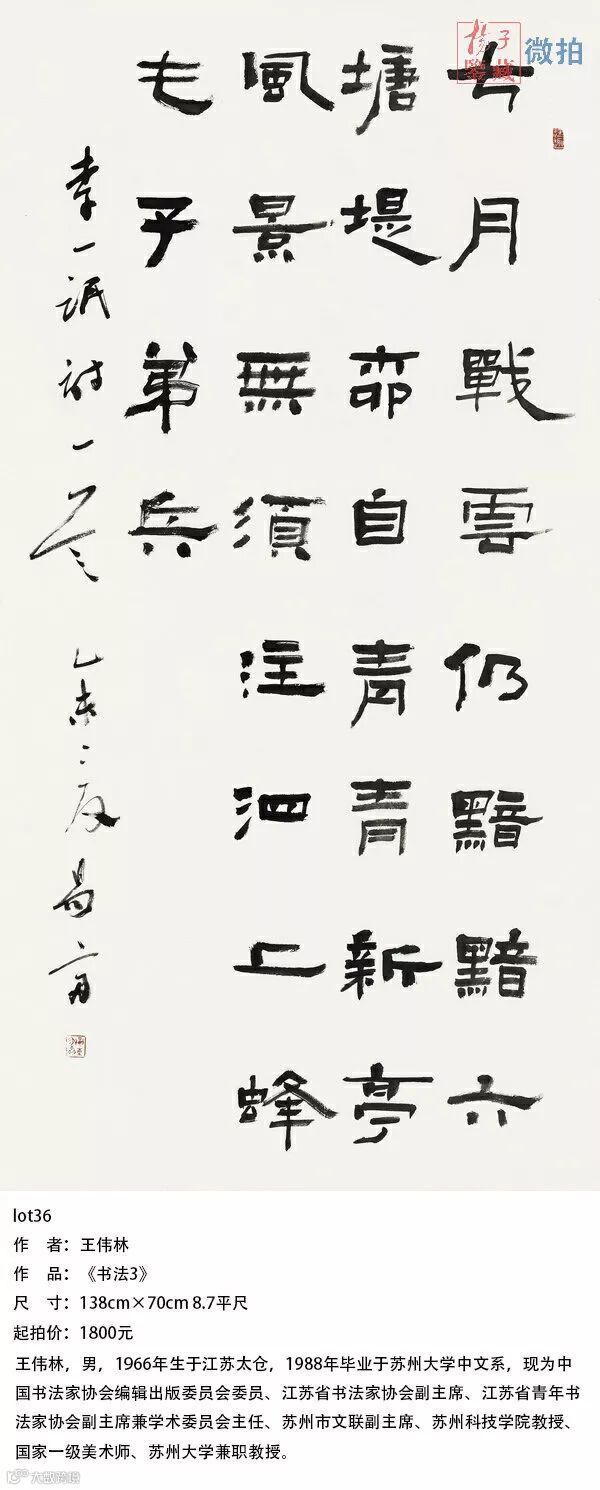 楊子
鑒藏 微拍
七月戰雲仍黯黯六
塘堤柳自青青新亭
風景無須泣泗上蜂
屯子弟兵
李一氓詩一首 乙未之夏
lot36
作　者：王伟林
作　品：《书法3》
尺　寸：138cm×70cm 8.7平尺
起拍价：1800元
王伟林，男，1966年生于江苏太仓，1988年毕业于苏州大学中文系，现为中
国书法家协会编辑出版委员会委员、江苏省书法家协会副主席、江苏省青年书
法家协会副主席兼学术委员会主任、苏州市文联副主席、苏州科技学院教授、
国家一级美术师、苏州大学兼职教授。
大数跨境